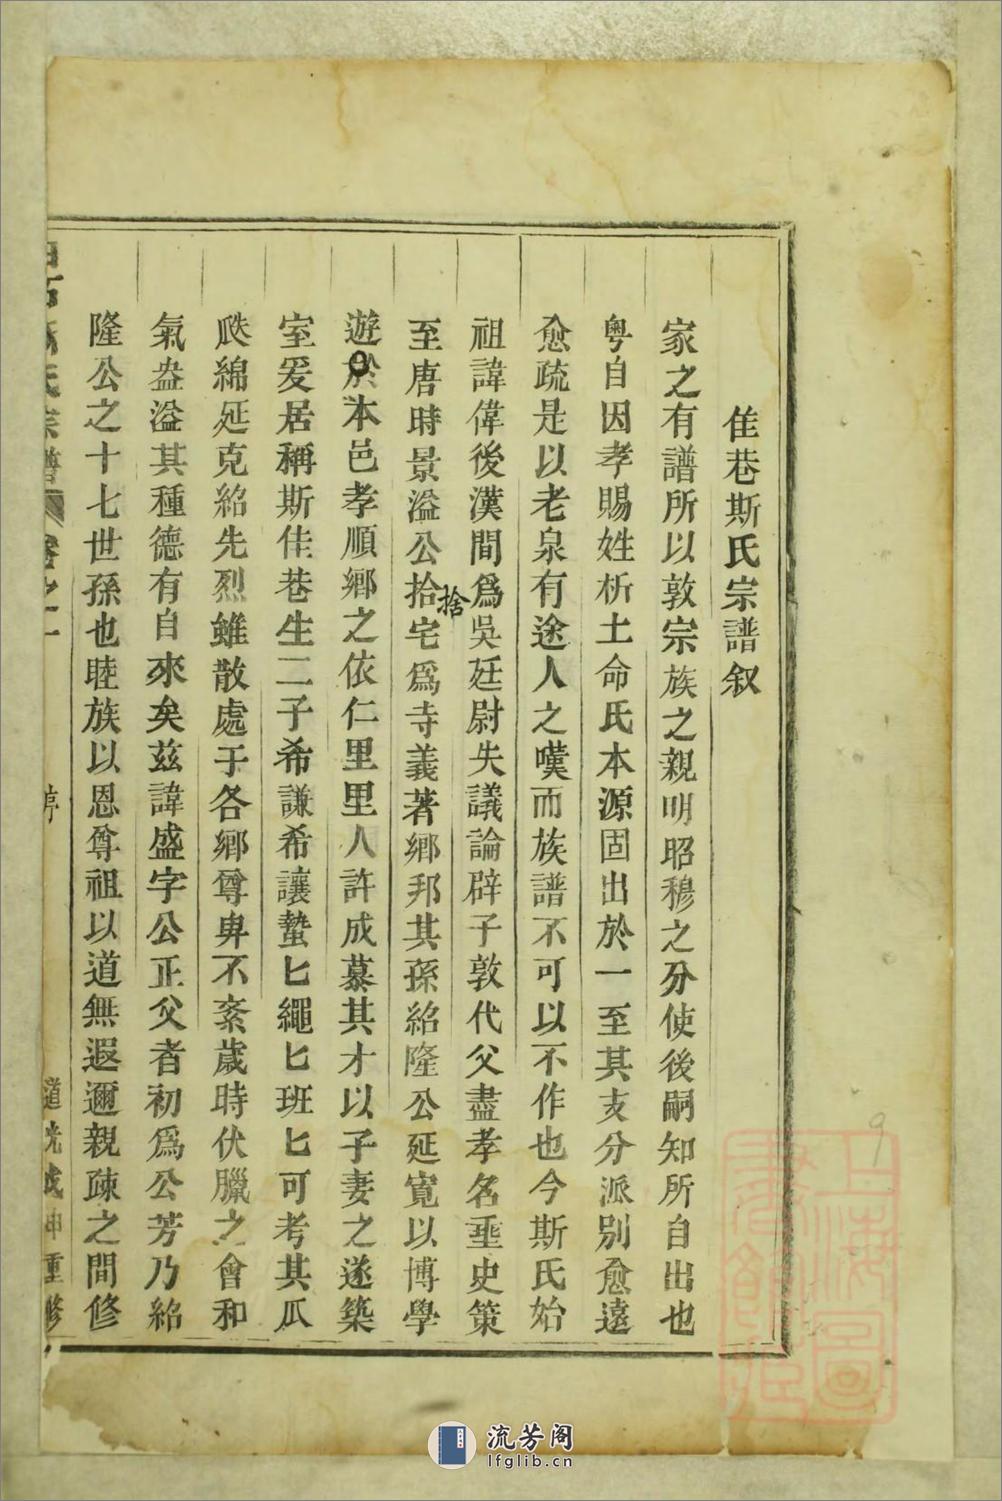 佳巷斯氏宗譜叙
家之有譜所以敦宗族之親明昭穆之分使後嗣知所自出也
粤自因孝賜姓析土命氏本源固出於一至其支分派別愈遠
愈疏是以老泉有途人之嘆而族譜不可以不作也今斯氏始
祖諱偉後漢間爲吳廷尉失議論辟子敦代父盡孝名垂史策
至唐時景溢公拾宅爲寺義著鄉邦其孫紹隆公延寬以博學
捨
遊於本邑孝順鄉之依仁里里人許成慕其才以子妻之遂築
室爰居稱斯佳巷生二子希謙希讓蟄匕繩匕班匕可考其瓜
瓞綿延克紹先烈雖散處于各鄉尊卑不紊歲時伏臘之會和
氣盎溢其種德有自來矣茲諱盛字公正父者初爲公芳乃紹
隆公之十七世孫也睦族以恩尊祖以道無遐邇親疎之間修
氏宗譜 卷之一
道光戊申重修
上海圖書館藏
9
流芳阁
lfglib.cn